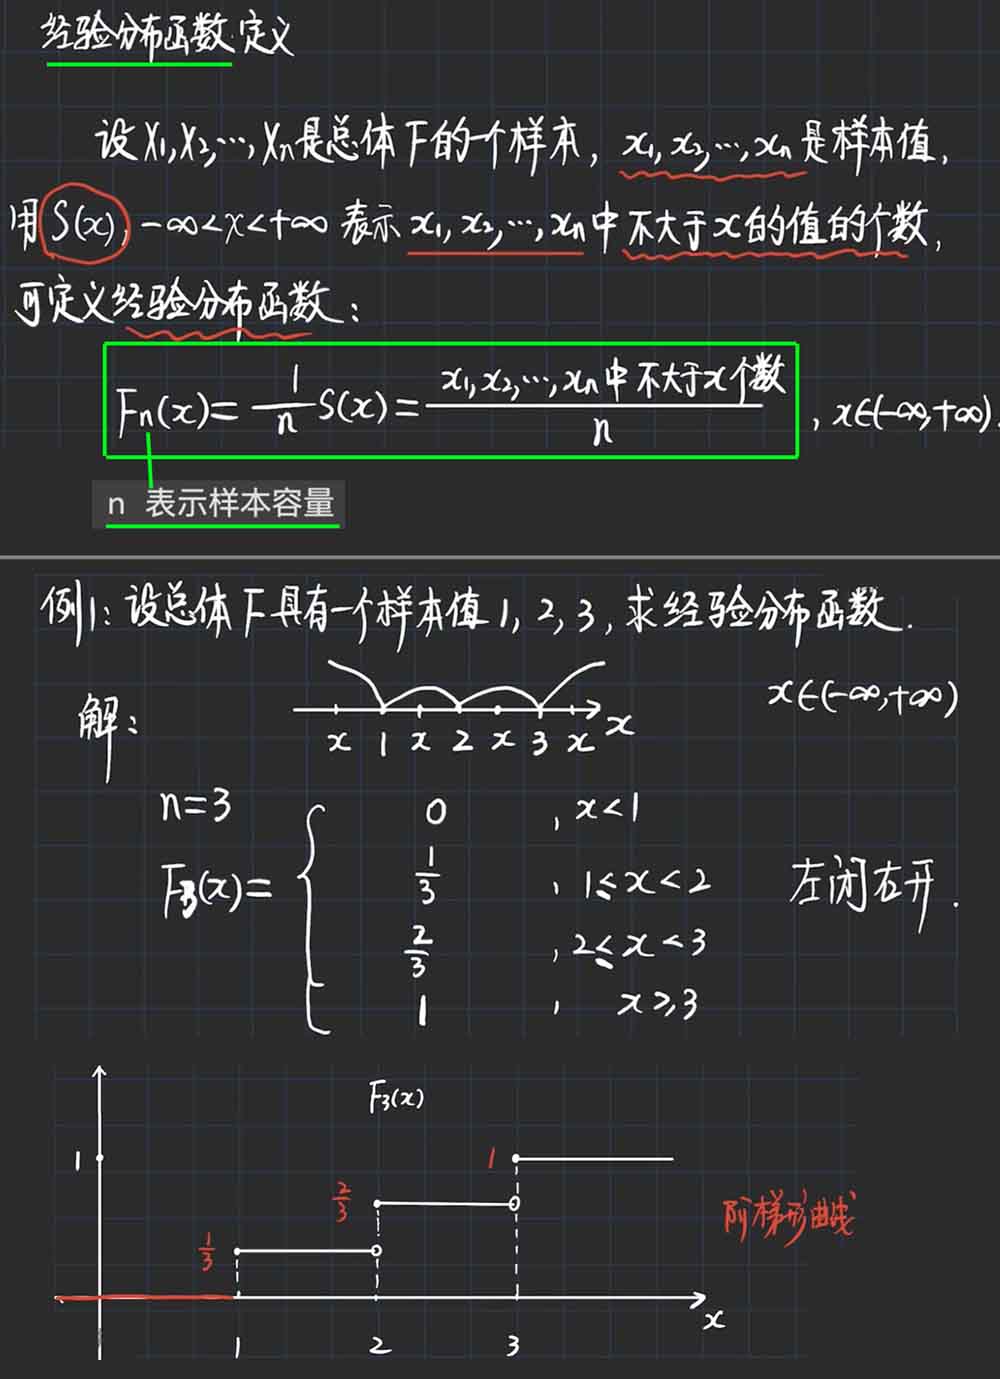 经验分布函数定义
设X₁,X₂,…,Xₙ是总体F的一个样本, x₁,x₂,…,xₙ是样本值,
用S(x), -∞<x<+∞ 表示 x₁,x₂,…,xₙ中不大于x的值的个数,
可定义经验分布函数:
Fₙ(x)= 1/n S(x)= x₁,x₂,…,xₙ中不大于x个数/n , x∈(-∞,+∞).
n 表示样本容量
例1: 设总体F具有一个样本值1, 2, 3, 求经验分布函数.
x∈(-∞,+∞)
解:
x 1 x 2 x 3 x x
n=3
F₃(x)=
0 , x<1
1/3 , 1≤x<2
2/3 , 2≤x<3
1 , x≥3
左闭右开.
F₃(x)
1
1
2/3
1/3
阶梯形曲线
x
1 2 3